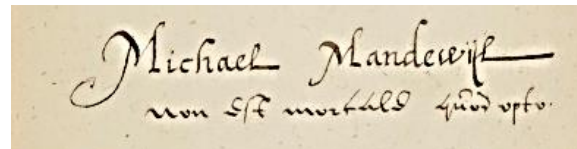 Michael Mandewijl
non est mortale quod opto.